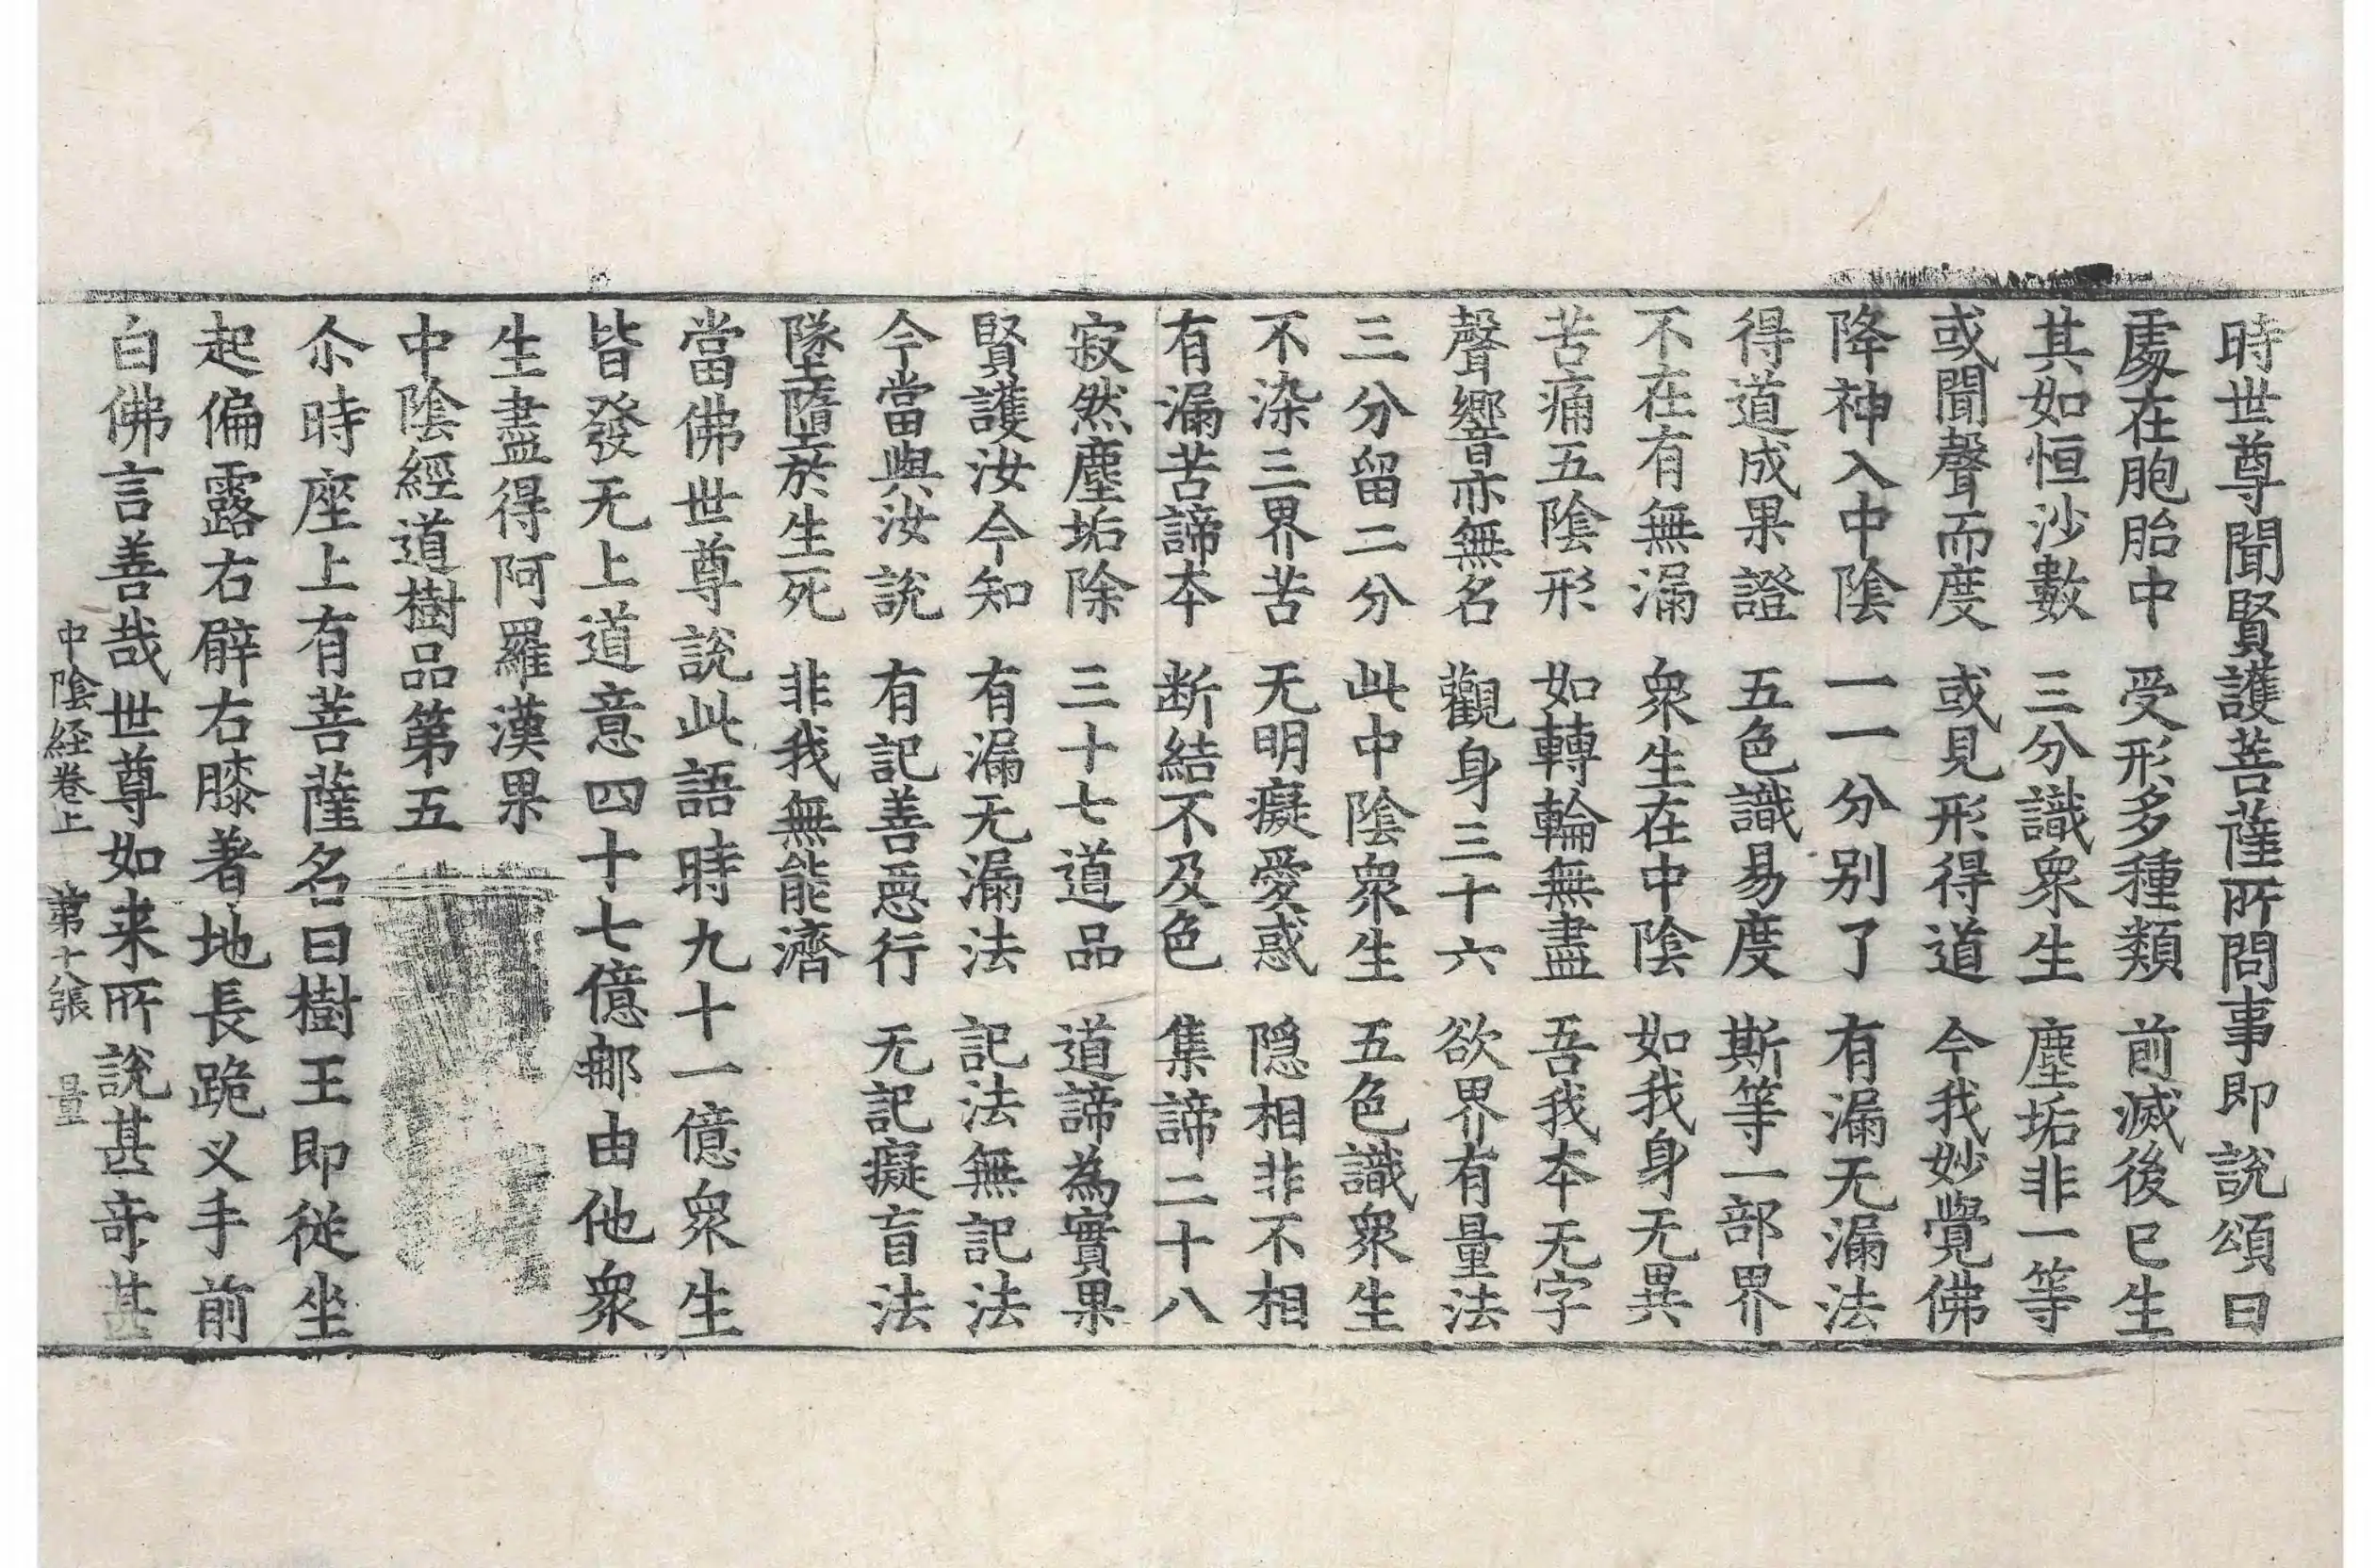 時世尊聞賢護菩薩所問事即說頌曰
處在胞胎中 受形多種類 前滅後已生
其如恒沙數 三分識衆生 塵垢非一等
或聞聲而度 或見形得道 今我妙覺佛
降神入中陰 一一分别了 有漏无漏法
得道成果證 五色識易度 斯等一部界
不在有無漏 衆生在中陰 如我身无異
苦痛五陰形 如轉輪無盡 吾我本无字
聲響亦無名 觀身三十六 欲界有量法
三分留二分 此中陰衆生 五色識衆生
不染三界苦 无明癡愛惑 隠相非不相
有漏苦諦本 断結不及色 集諦二十八
寂然塵垢除 三十七道品 道諦為實果
賢護汝今知 有漏无漏法 記法無記法
今當與汝說 有記善惡行 无記癡盲法
墜墮於生死 非我無能濟
當佛世尊說此語時九十一億衆生
皆發无上道意四十七億郍由他衆
生盡得阿羅漢果
中陰經道樹品第五
尒時座上有菩薩名曰樹王即從坐
起偏露右臂右膝著地長跪叉手前
白佛言善哉世尊如来所說甚奇甚
中陰経卷上 第十八張 量